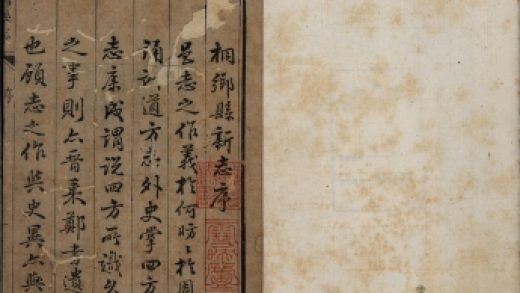 桐鄉縣新志序
是志之作義於何昉〻於周
誦訓道方志外史掌四方
志康成謂說四方所識久
之事則亦晉乘鄭書遺
也顧志之作與史異亦與
序